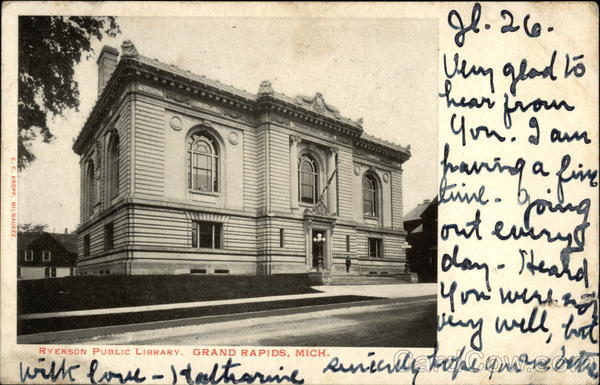 Jl. 26.
Very glad to
hear from
you. I am
having a fine
time. Going
out every
day. Heard
you were not
very well, but
sincerely hope you're better
with love - Katharine
RYERSON PUBLIC LIBRARY. GRAND RAPIDS, MICH.
E. C. KROPP, MILWAUKEE.
CardCow.com